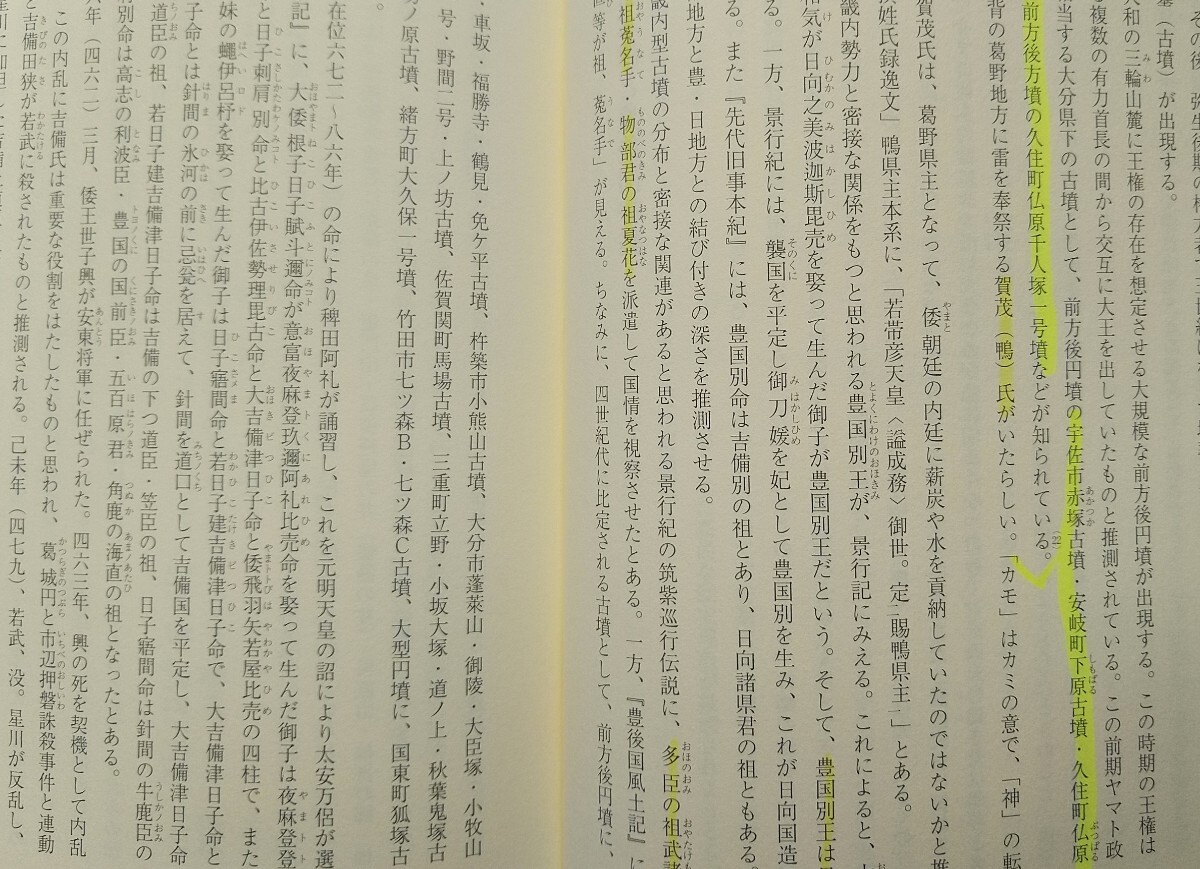 その後、弥生後期の
墓（古墳）が出現する。
大和の三輪山麓に王権の存在を想定させる大規模な前方後円墳が出現する。この時期の王権は
る複数の有力首長の間から交互に大王を出していたものと推測されている。この前期ヤマト政
相当する大分県下の古墳として、前方後円墳の宇佐市赤塚古墳・安岐町下原古墳・久住町仏原
前方後方墳の久住町仏原千人塚一号墳などが知られている。(22)
背の葛野地方に雷を奉祭する賀茂（鴨）氏がいたらしい。「カモ」はカミの意で、「神」の転
賀茂氏は、葛野県主となって、倭朝廷の内廷に薪炭や水を貢納していたのではないかと推
撰姓氏録逸文」鴨県主本系に、「若帯彦天皇〈謚成務〉御世。定二賜鴨県主一」とある。
畿内勢力と密接な関係をもつと思われる豊国別王が、景行記にみえる。これによると、
和気が日向之美波迦斯毘売を娶って生んだ御子が豊国別王だという。そして、豊国別王は
る。一方、景行紀には、襲国を平定し御刀媛を妃として豊国別を生み、これが日向国造
る。また『先代旧事本紀』には、豊国別命は吉備別の祖とあり、日向諸県君の祖ともある。
日地方と豊・日地方との結び付きの深さを推測させる。
畿内型古墳の分布と密接な関連があると思われる景行紀の筑紫巡行伝説に、多臣の祖武諸
祖菟名手・物部君の祖夏花を派遣して国情を視察させたとある。一方、『豊後国風土記』に
直等が祖、菟名手」が見える。ちなみに、四世紀代に比定される古墳として、前方後円墳に、
・車坂・福勝寺・鶴見・免ケ平古墳、杵築市小熊山古墳、大分市蓬萊山・御陵・大臣塚・小牧山
号・野間二号・上ノ坊古墳、佐賀関町馬場古墳、三重町立野・小坂大塚・道ノ上・秋葉鬼塚古
ノ原古墳、緒方町大久保一号墳、竹田市七ツ森B・七ツ森C古墳、大型円墳に、国東町狐塚古
。
在位六七二～八六年）の命により稗田阿礼が誦習し、これを元明天皇の詔により太安万侶が選
記』に、大倭根子日子賦斗邇命が意富夜麻登玖邇阿礼比売命を娶って生んだ御子は夜麻登登
と日子刺肩別命と比古伊佐勢理毘古命と大吉備津日子命と倭飛羽矢若屋比売の四柱で、また
妹の蠅伊呂杼を娶って生んだ御子は日子寤間命と若日子建吉備津日子命で、大吉備津日子命と
子命とは針間の氷河の前に忌瓮を居えて、針間を道口として吉備国を平定し、大吉備津日子命
道臣の祖、若日子建吉備津日子命は吉備の下つ道臣・笠臣の祖、日子寤間命は針間の牛鹿臣の
別命は高志の利波臣・豊国の国前臣・五百原君・角鹿の海直の祖となったとある。
年（四六二）三月、倭王世子興が安東将軍に任ぜられた。四六三年、興の死を契機として内乱
この内乱に吉備氏は重要な役割をはたしたものと思われ、葛城円と市辺押磐誅殺事件と連動
吉備田狭が若武に殺されたものと推測される。己未年（四七九）、若武、没。星川が反乱し、